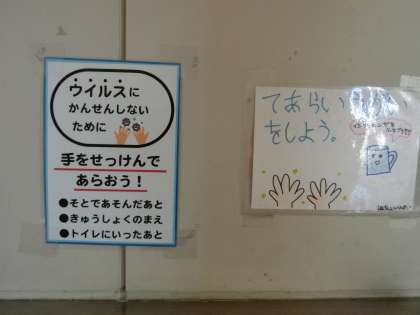 ウイルスに
かんせんしない
ために
手をせっけんで
あらおう!
●そとであそんだあと
●きゅうしょくのまえ
●トイレにいったあと
てあらい
をしよう。